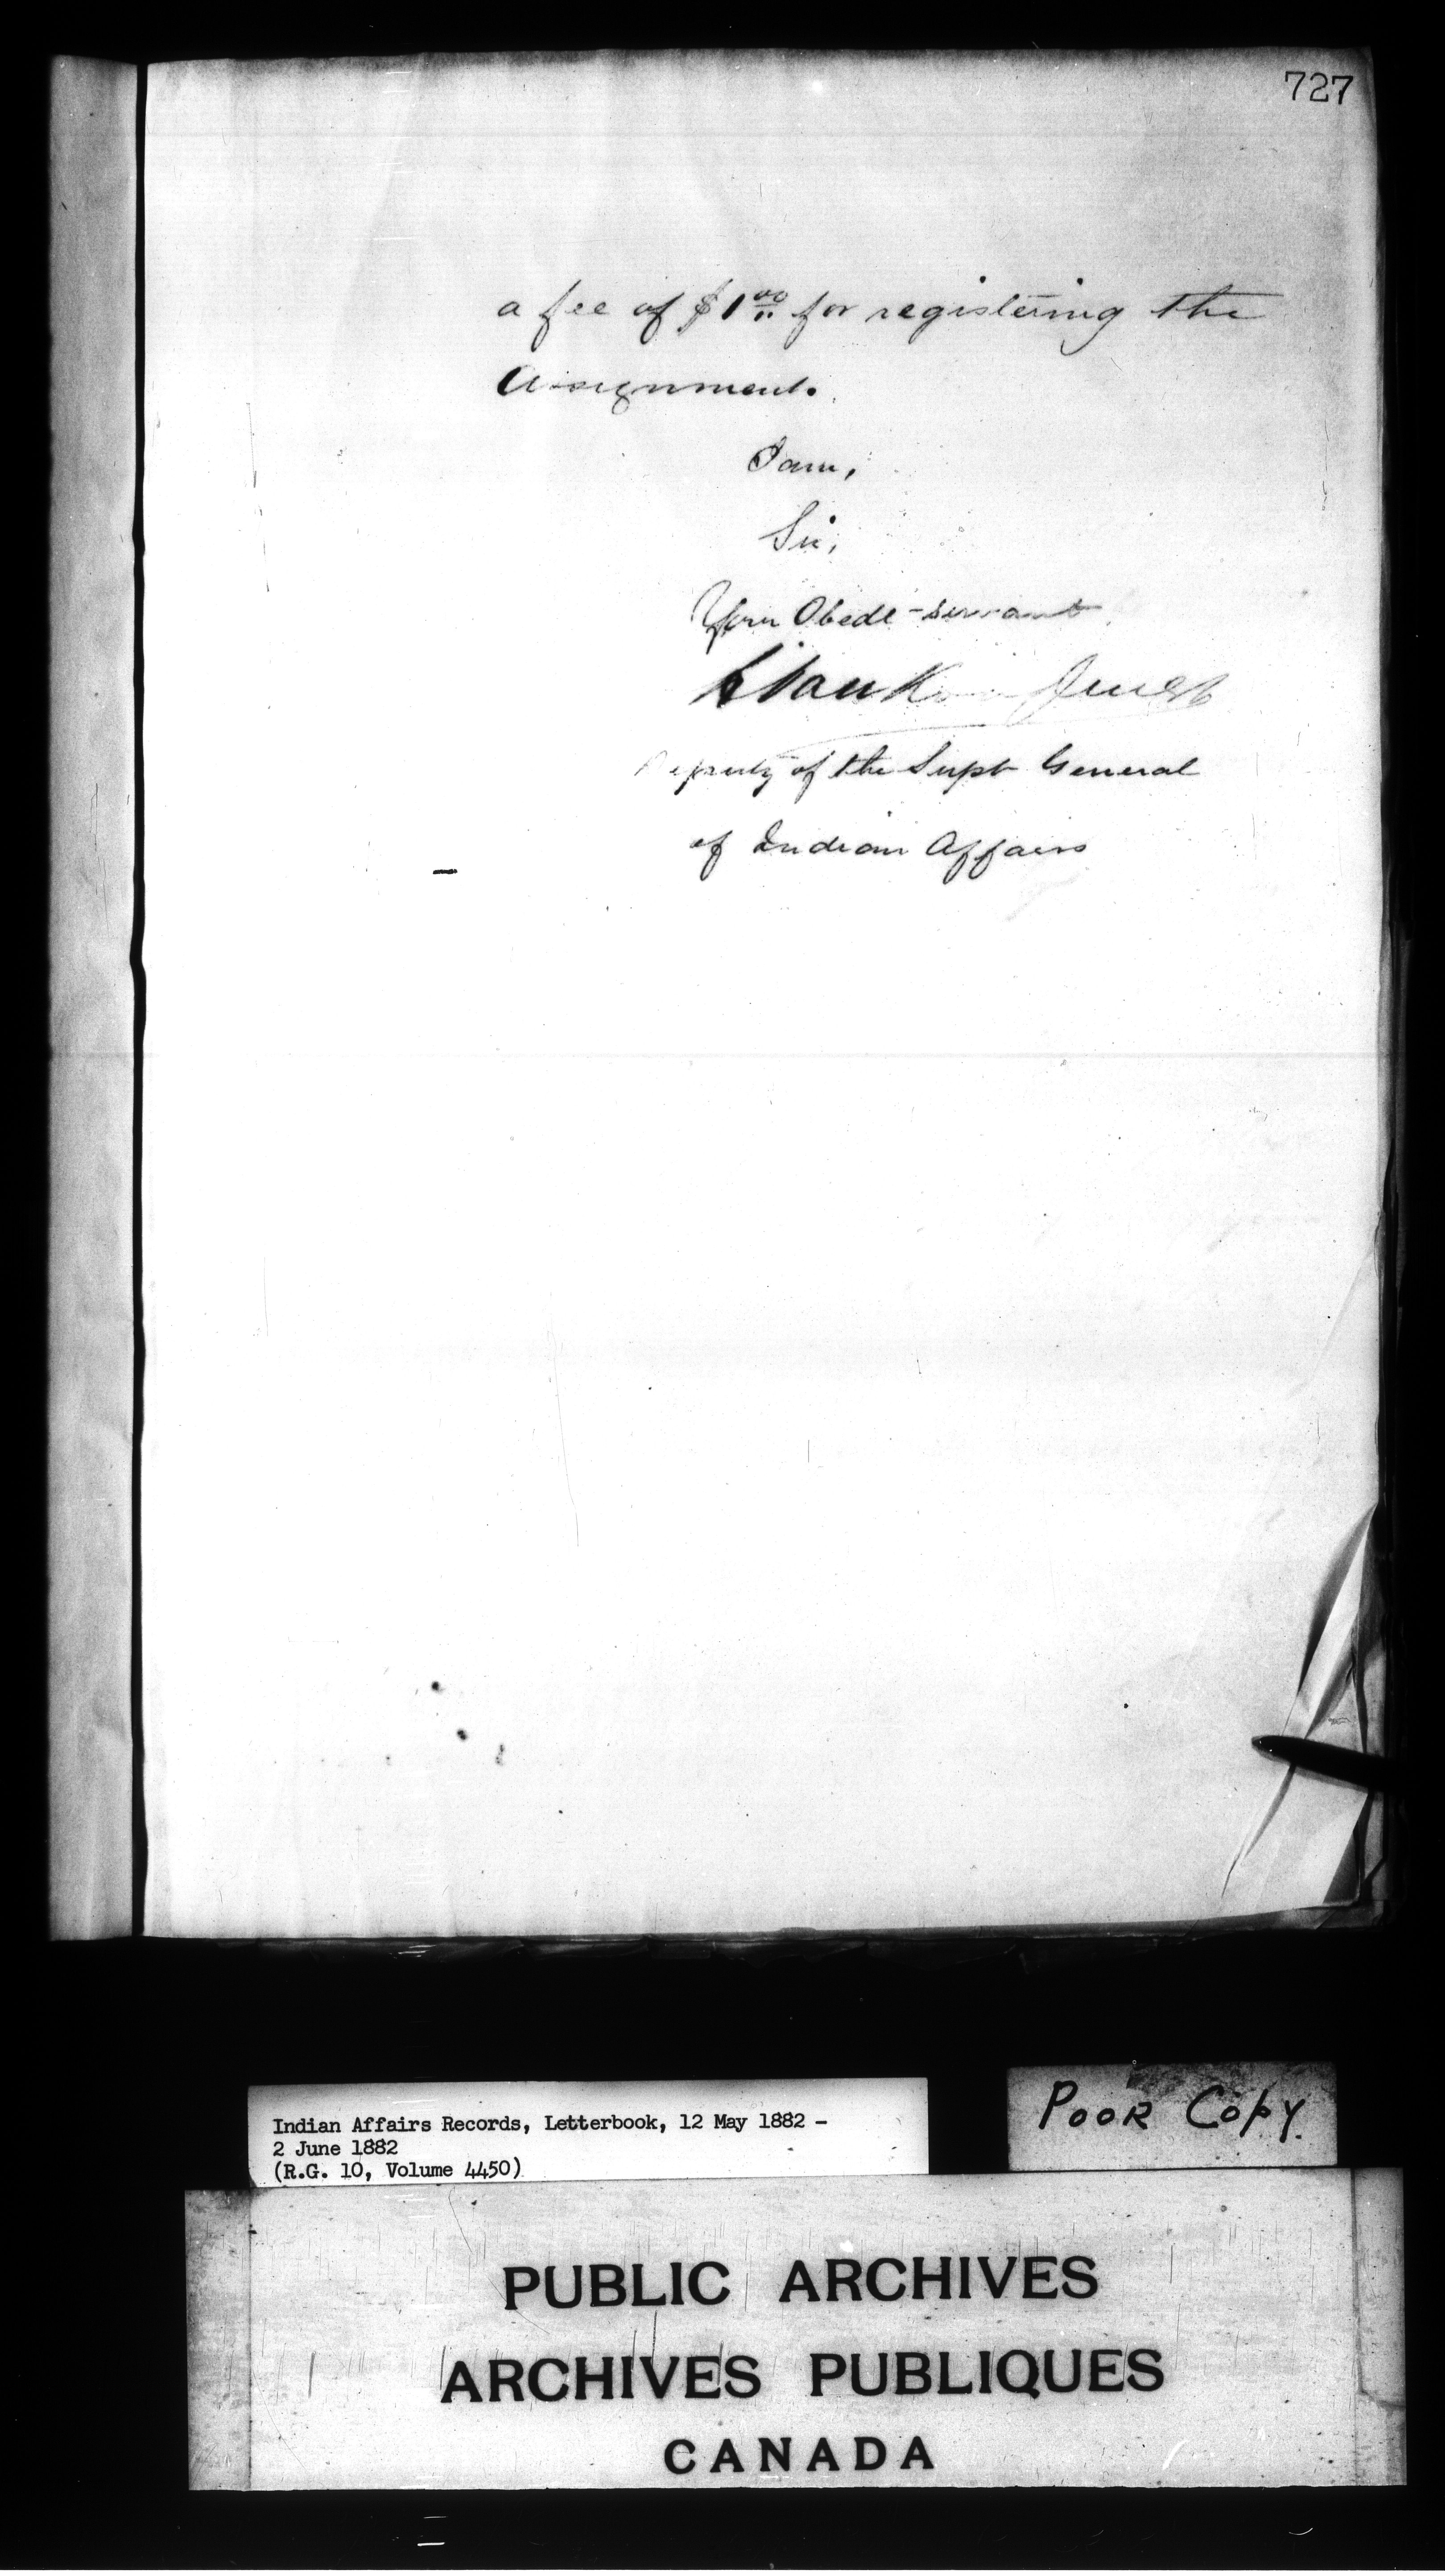 727
a fee of $1.00 for registering the
Assignment.
I am,
Sir,
Your Obedt servant
Deputy of the Supt General
of Indian Affairs
Indian Affairs Records, Letterbook, 12 May 1882 -
2 June 1882
(R.G. 10, Volume 4450)
POOR COPY.
PUBLIC ARCHIVES
ARCHIVES PUBLIQUES
CANADA